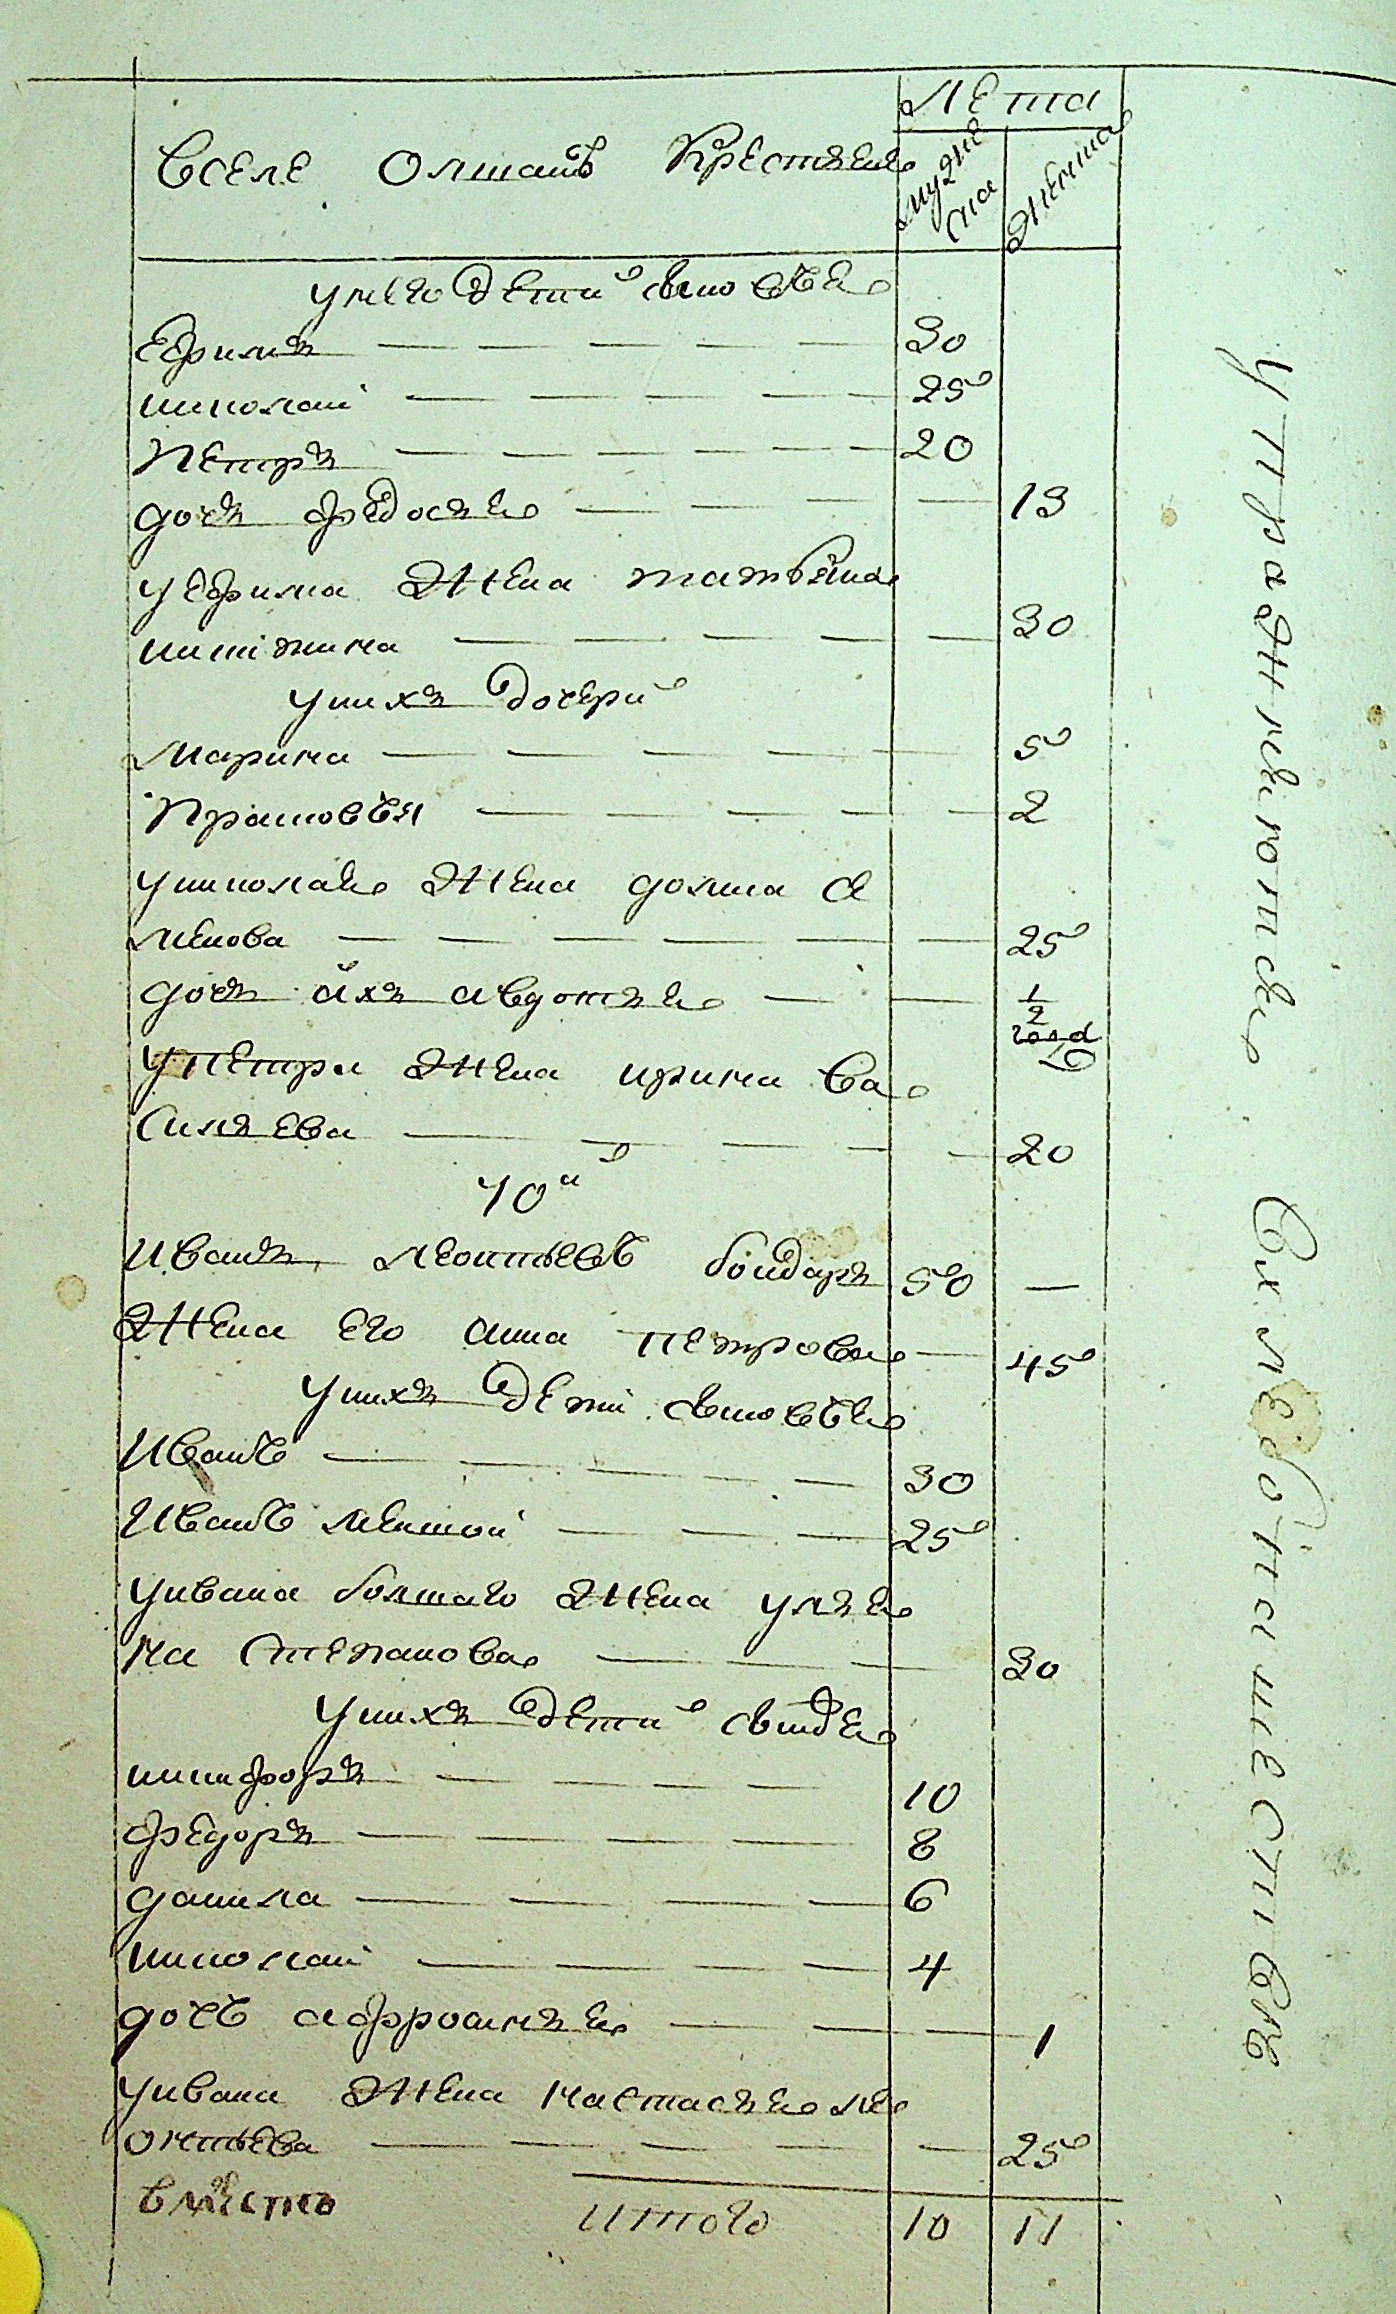 Лета
Вселе Олшанъ Крестяне
мужеска
женска
унего дети сыновъя
Ефимъ 30
николаи 25
Петръ 20
дочъ федосья 13
уефима жена татьяна
никитина 30
унихъ дочери
Марина 5
Прасковъя 2
униколая жена домна се
менова 25
дочъ ихъ авдотья 1/2 года
упетра жена ирина ва
силъева 20
40й
Иванъ леонтьевъ бондаръ 50 —
жена его анна петрова 45
унихъ дети сыновъя
Иванъ 30
Иванъ меншои 25
уивана болшаго жена улья
на степанова 30
унихъ дети
никифоръ 10
федоръ 8
данила 6
николаи 4
дочъ афросинья 1
уивана жена настасья ле
онтьева 25
вместо итого 10 11